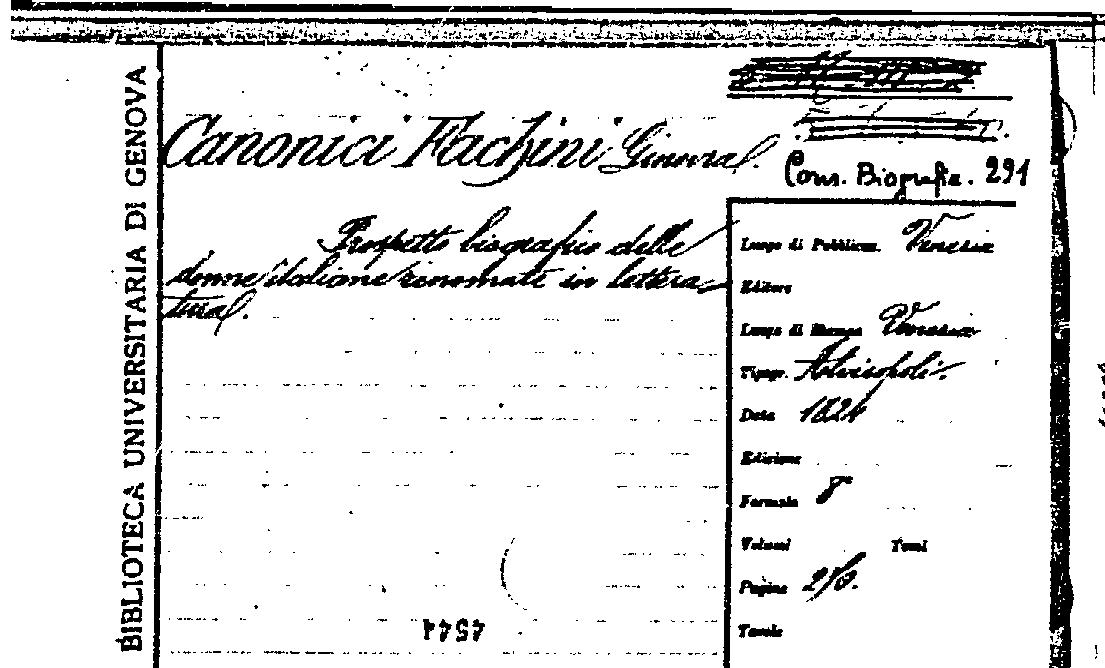 BIBLIOTECA UNIVERSITARIA DI GENOVA
Canonici Fachini Ginevra.
Cons. Biografie. 291
Prospetto biografico delle
donne italiane rinomate in lettera-
tura.
Luogo di Pubblicaz. Venezia
Editore
Luogo di Stampa Venezia
Tipogr. Alvisopoli.
Data 1824
Edizione
Formato 8°
Volumi Tomi
Pagine
Tavole
4544